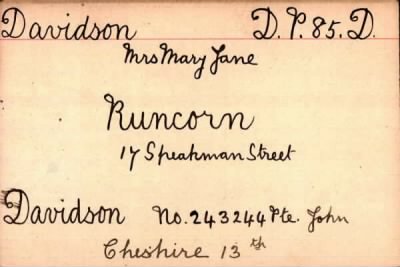 Davidson D.P.85.D.
Mrs Mary Jane
Runcorn
17 Speakman Street
Davidson No. 243244 Pte. John
Cheshire 13th